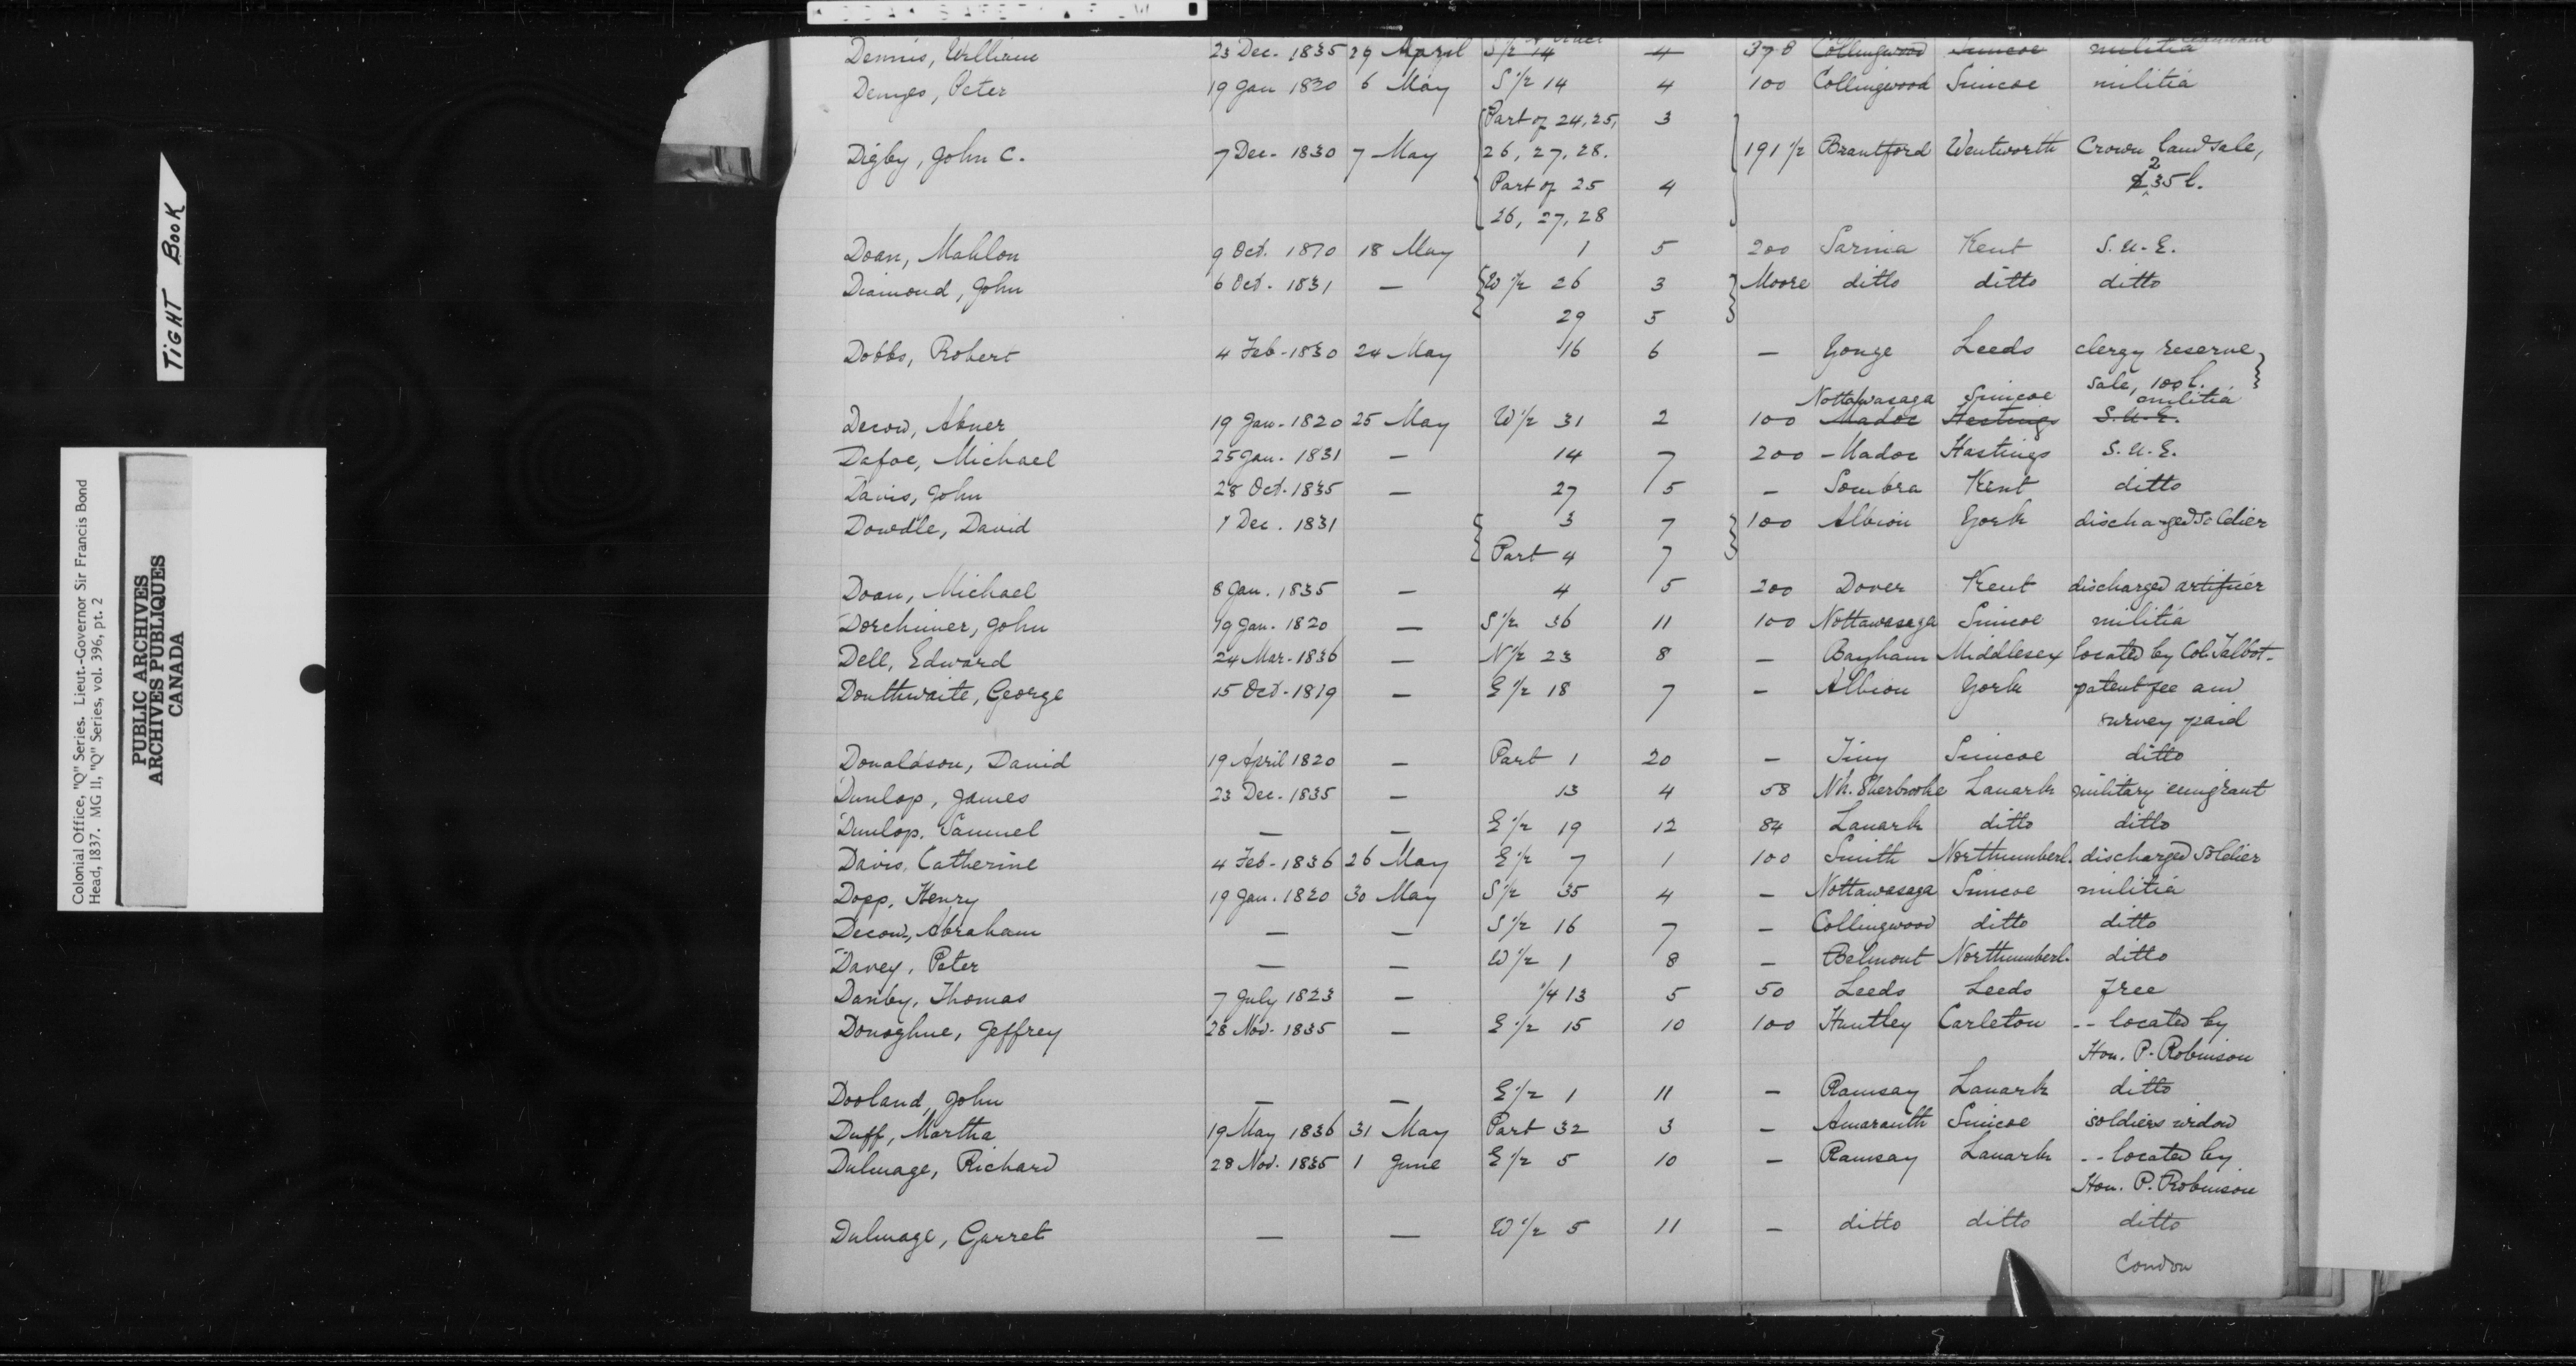 TIGHT BOOK
Colonial Office, "Q" Series. Lieut.-Governor Sir Francis Bond
Head, 1837. MG 11, "Q" Series, vol. 396, pt. 2
PUBLIC ARCHIVES
ARCHIVES PUBLIQUES
CANADA
Dennis, William 23 Dec. 1835 29 April S 1/2 14 4 378 Collingwood Simcoe militia
Denyes, Peter 19 Jan 1820 6 May S 1/2 14 4 100 Collingwood Simcoe militia
Part of 24, 25, 3
Digby, John C. 7 Dec. 1830 7 May 26, 27, 28. 191 1/2 Brantford Wentworth Crown land sale,
Part of 25 4 235 l.
26, 27, 28
Doan, Mahlon 9 Oct. 1810 18 May 1 5 200 Sarnia Kent S. U. E.
Diamond, John 6 Oct. 1831 — W 1/2 26 3 Moore ditto ditto ditto
29 5
Dobbs, Robert 4 Feb. 1830 24 May 16 6 — Yonge Leeds clergy reserve
sale, 100 l.
Nottawasaga Simcoe militia
Decow, Abner 19 Jan. 1820 25 May W 1/2 31 2 100 Madoc Hastings S. U. E.
Dafoe, Michael 25 Jan. 1831 — 14 7 200 – Madoc Hastings S. U. E.
Davis, John 28 Oct. 1835 — 27 5 — Sombra Kent ditto
Dowdle, David 7 Dec. 1831 3 7 100 Albion York discharged soldier
Part 4 7
Doan, Michael 8 Jan. 1835 — 4 5 200 Dover Kent discharged artificer
Dorchimer, John 19 Jan. 1820 — S 1/2 36 11 100 Nottawasaga Simcoe militia
Dell, Edward 24 Mar. 1836 — N 1/2 23 8 — Bayham Middlesex located by Col. Talbot.
Douthwaite, George 15 Oct. 1819 — E 1/2 18 7 — Albion York patent fee and
survey paid
Donaldson, David 19 April 1820 — Part 1 20 — Tiny Simcoe ditto
Dunlop, James 23 Dec. 1835 — 13 4 58 Nh. Sherbrooke Lanark military emigrant
Dunlop, Samuel — — E 1/2 19 12 84 Lanark ditto ditto
Davis, Catherine 4 Feb. 1836 26 May E 1/2 7 1 100 Smith Northumberl. discharged soldier
Dopp, Henry 19 Jan. 1820 30 May S 1/2 35 4 — Nottawasaga Simcoe militia
Decow, Abraham — — S 1/2 16 7 — Collingwood ditto ditto
Davey, Peter — — W 1/2 1 8 — Belmont Northumberl. ditto
Danby, Thomas 7 July 1823 — 1/4 13 5 50 Leeds Leeds free
Donoghue, Jeffrey 28 Nov. 1835 — E 1/2 15 10 100 Huntley Carleton -- located by
Hon. P. Robinson
Dooland, John — — E 1/2 1 11 — Ramsay Lanark ditto
Duff, Martha 19 May 1836 31 May Part 32 3 — Amaranth Simcoe soldiers widow
Dulmage, Richard 28 Nov. 1835 1 June E 1/2 5 10 — Ramsay Lanark -- located by
Hon. P. Robinson
Dulmage, Garret — — W 1/2 5 11 — ditto ditto ditto
Condon